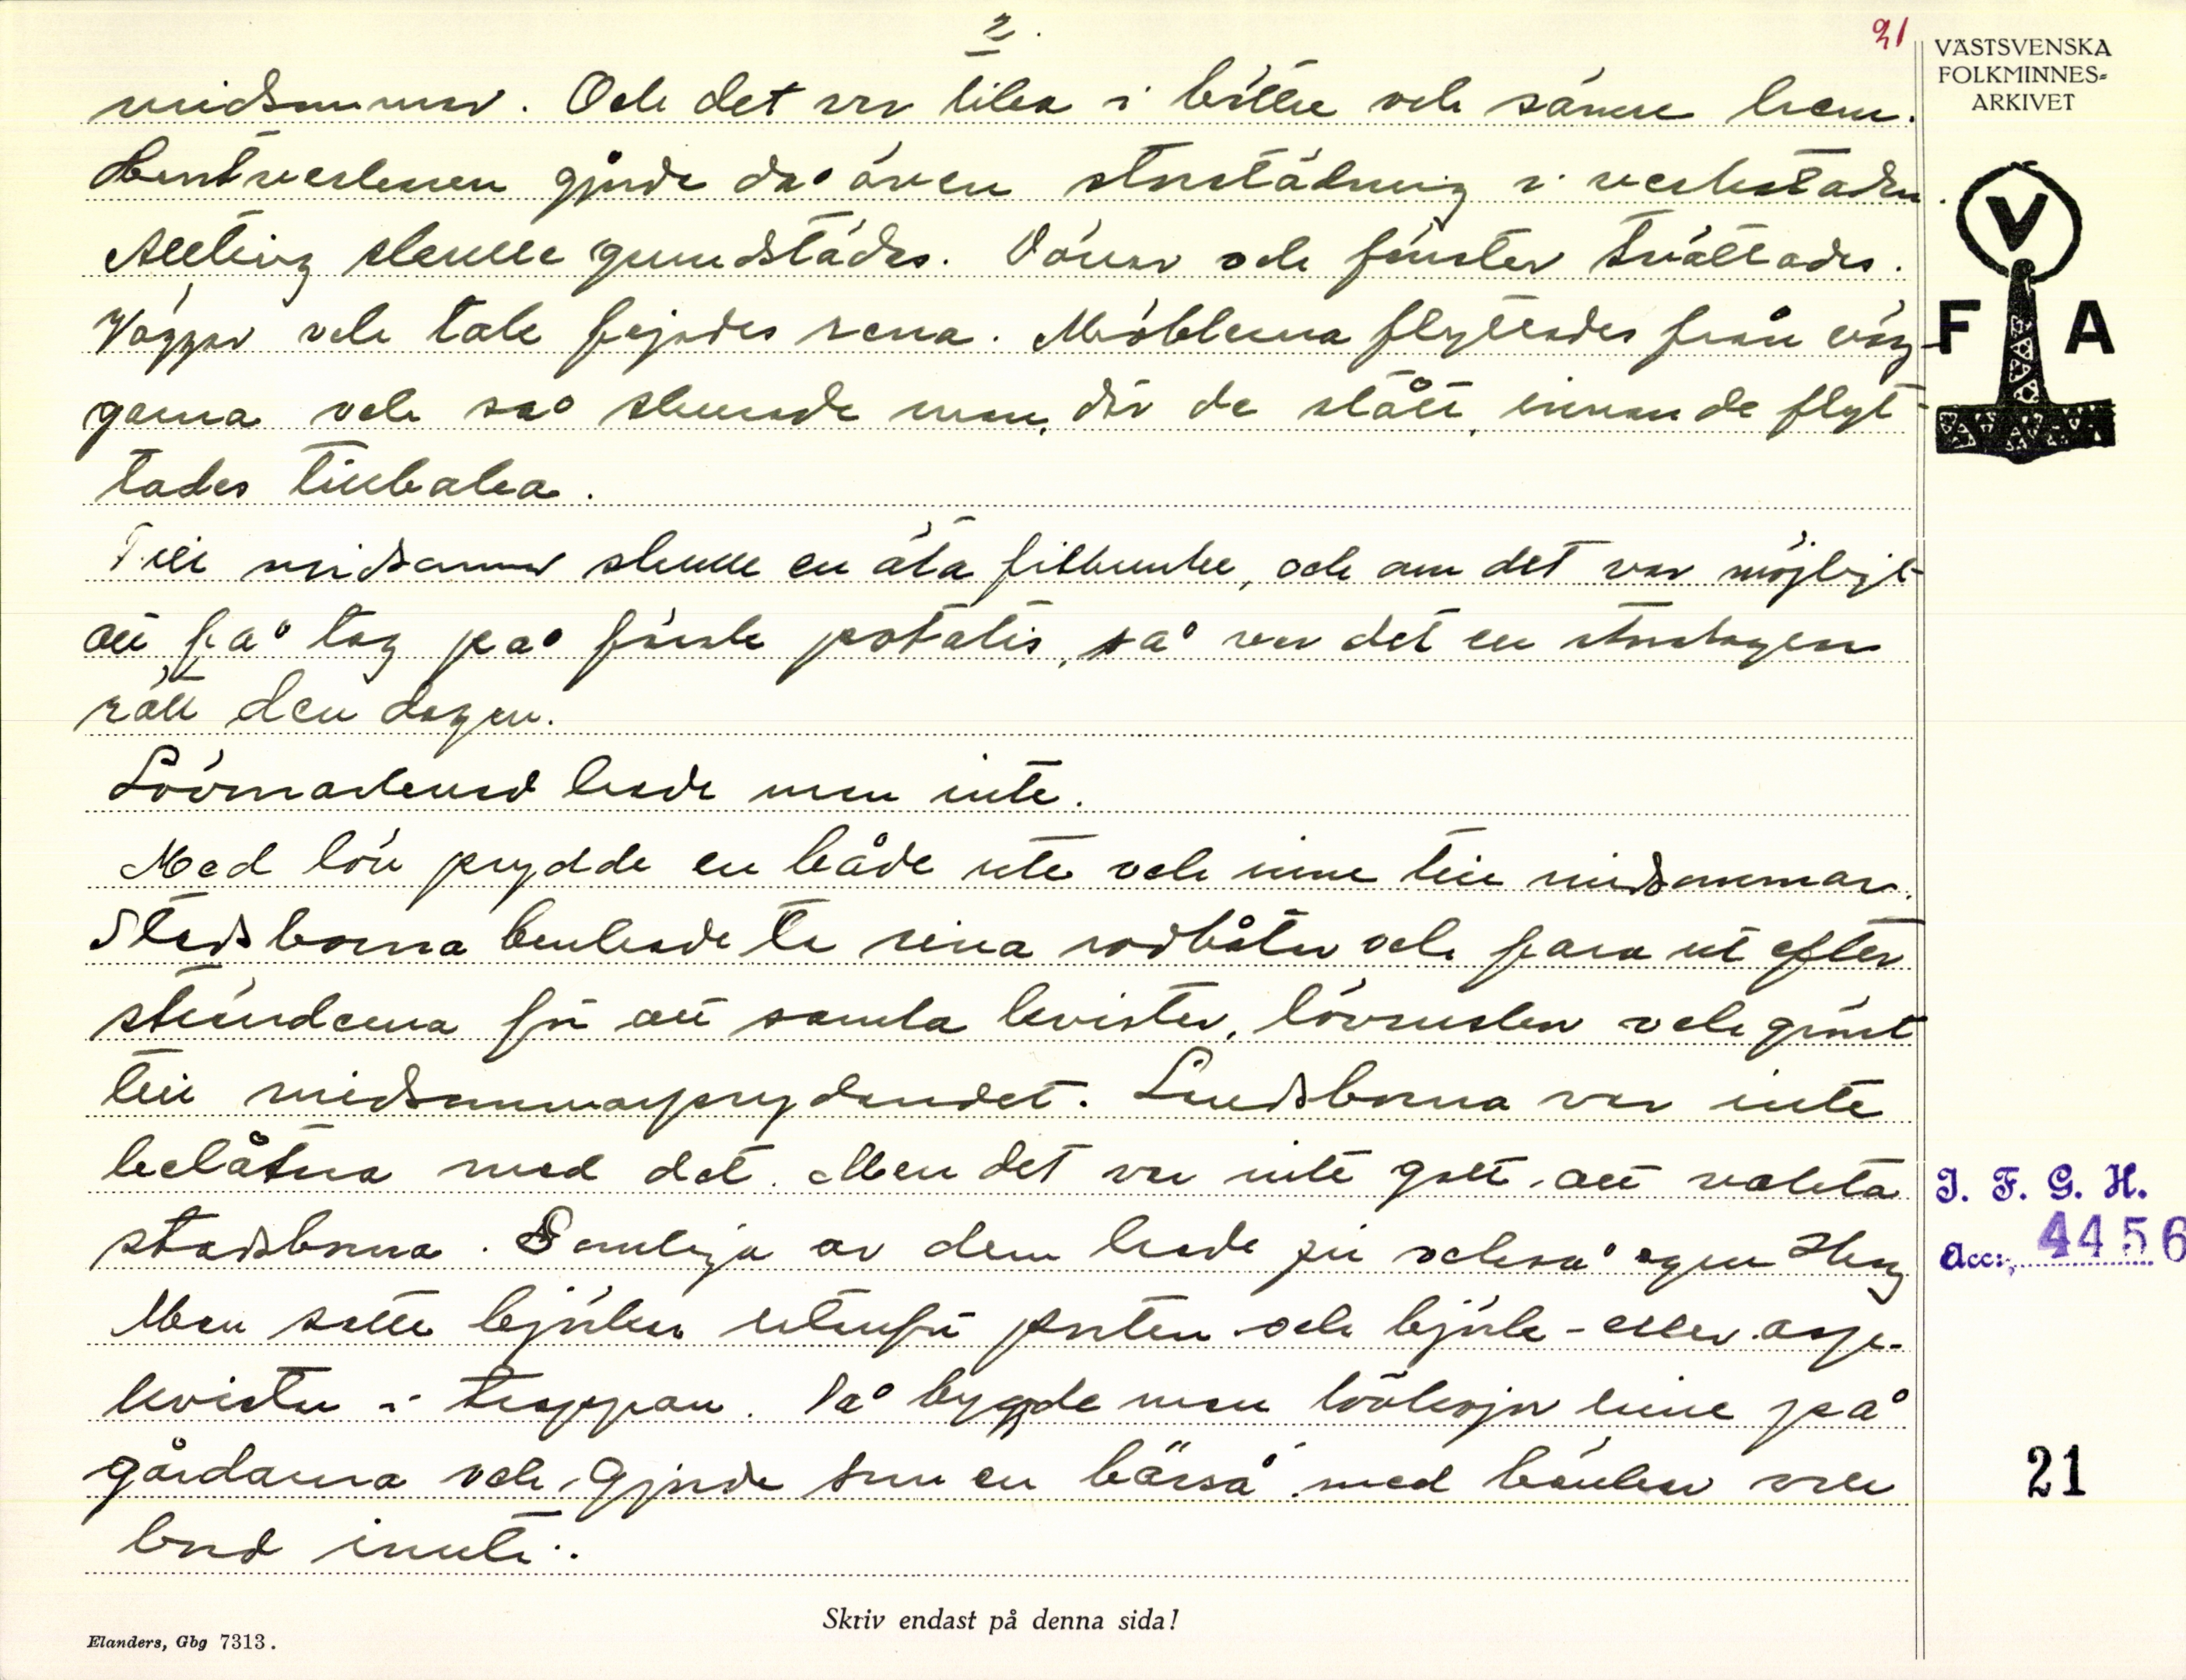 2.
21
VÄSTSVENSKA
FOLKMINNES-
ARKIVET
midsommar. Och det var lika i bättre och sämre hem.
Hantverkaren gjorde då även storstädning i verkstaden.
Allting skulle grundstädas. Dörrar och fönster tvättades.
Väggar och tak fejades rena. Möblerna flyttades från väg-
garna och så skurade man, där de stått, innan de flyt-
tades tillbaka.
Till midsommar skulle en äta filbunke, och om det var möjligt
att få tag på färsk potatis, så var det en
rätt den dagen.
Lövmarknad hade man inte.
Med löv prydde en både ute och inne till midsommar.
Stadsborna brukade ta sina rodbåtar och fara ut efter
stränderna för att samla kvistar, lövruskor och grönt
till midsommarprydandet. Landsborna var inte
belåtna med det. Men det var inte gott att vakta
stadsborna. Somliga av dem hade ju också egen skog
Man satte björkar utanför porten och björk- eller asp-
kvistar i trappan. Så bygde man lövkojor inne på
gårdarna och gjorde som en bärså med bänkar och
bord inuti.
V
F A
I. F. G. H.
Acc: 4456
21
Skriv endast på denna sida!
Elanders, Gbg 7313.